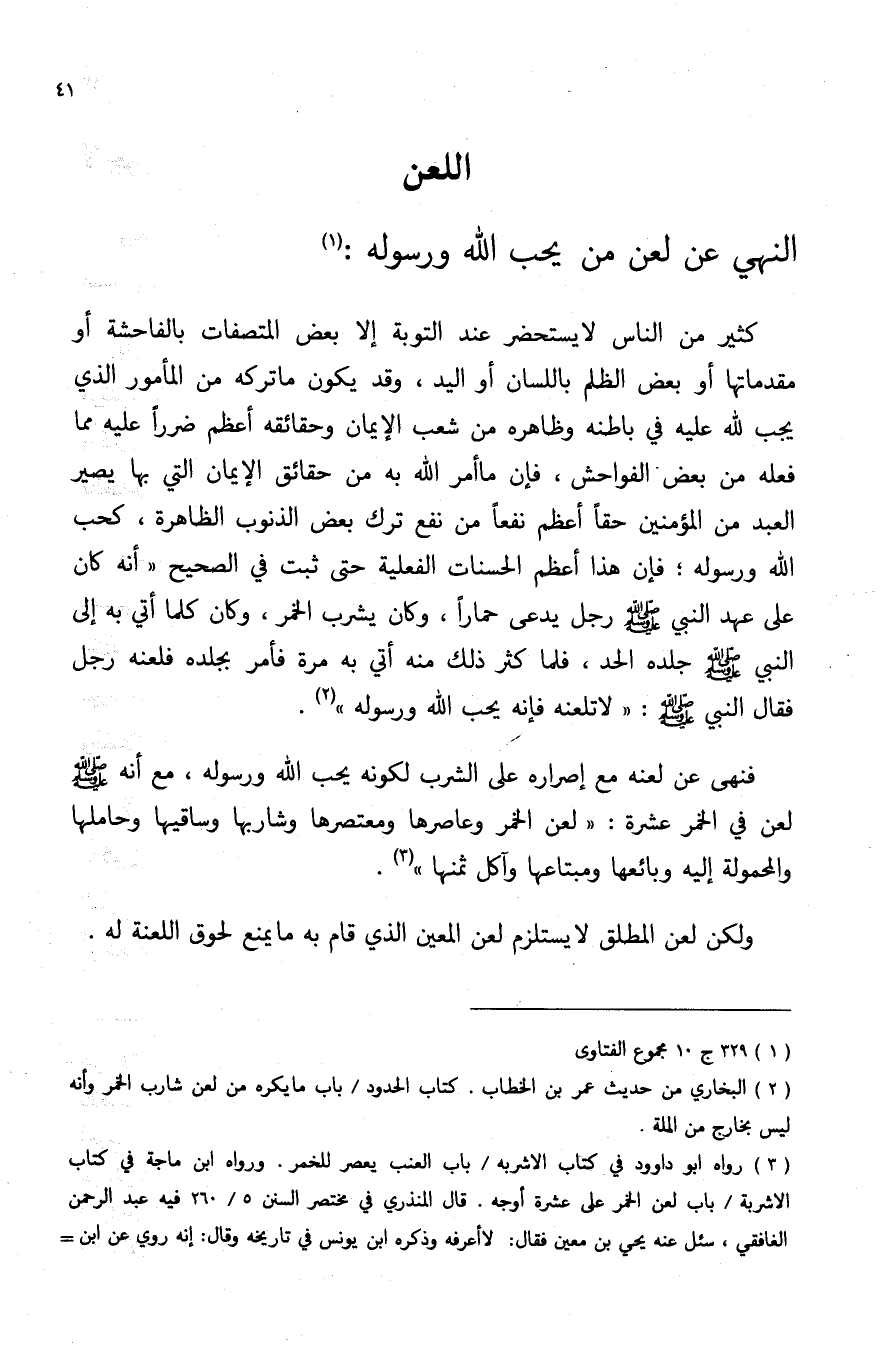 ٤١
اللعن
النهي عن لعن من يحب الله ورسوله :(١)
كثير من الناس لايستحضر عند التوبة إلا بعض المتصفات بالفاحشة أو
مقدماتها أو بعض الظلم باللسان أو اليد ، وقد يكون ماتركه من المأمور الذي
يجب لله عليه في باطنه وظاهره من شعب الإيمان وحقائقه أعظم ضرراً عليه مما
فعله من بعض الفواحش ، فإن ماأمر الله به من حقائق الإيمان التي بها يصير
العبد من المؤمنين حقاً أعظم نفعاً من نفع ترك بعض الذنوب الظاهرة ، كحب
الله ورسوله ؛ فإن هذا أعظم الحسنات الفعلية حتى ثبت في الصحيح « أنه كان
على عهد النبي ﷺ رجل يدعى حماراً ، وكان يشرب الخمر ، وكان كلما أتي به إلى
النبي ﷺ جلده الحد ، فلما كثر ذلك منه أتي به مرة فأمر بجلده فلعنه رجل
فقال النبي ﷺ : « لاتلعنه فإنه يحب الله ورسوله »(٢) .
فنهى عن لعنه مع إصراره على الشرب لكونه يحب الله ورسوله ، مع أنه ﷺ
لعن في الخمر عشرة : « لعن الخمر وعاصرها ومعتصرها وشاربها وساقيها وحاملها
والمحمولة إليه وبائعها ومبتاعها وآكل ثمنها »(٣) .
ولكن لعن المطلق لايستلزم لعن المعين الذي قام به مايمنع لحوق اللعنة له .
( ١ ) ٣٢٩ ج ١٠ مجموع الفتاوى
( ٢ ) البخاري من حديث عمر بن الخطاب . كتاب الحدود / باب مايكره من لعن شارب الخمر وأنه
ليس بخارج من الملة .
( ٣ ) رواه ابو داوود في كتاب الاشربه / باب العنب يعصر للخمر . ورواه ابن ماجة في كتاب
الاشربة / باب لعن الخمر على عشرة أوجه . قال المنذري في مختصر السنن ٥ / ٢٦٠ فيه عبد الرحمن
الغافقي ، سئل عنه يحي بن معين فقال: لاأعرفه وذكره ابن يونس في تاريخه وقال: إنه روي عن ابن =